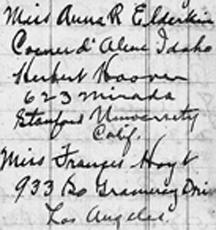 Miss Anna R Elderkin
Coeur d'Alene Idaho
Herbert Hoover
623 Mirada
Stanford University
Calif.
Miss Frances Hoyt
933 So Gramercy Driv
Los Angeles.